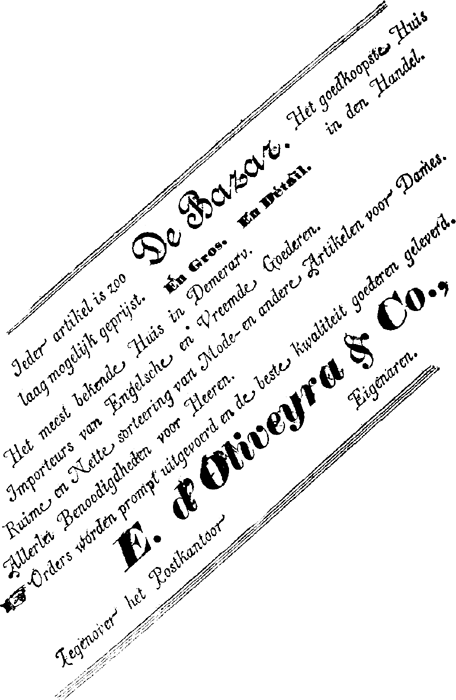 Ieder artikel is zoo
laag mogelijk geprijst.
De Bazar.
En Gros. En Détail.
Het goedkoopste Huis
in den Handel.
Het meest bekende Huis in Demerary.
Importeurs van Engelsche en Vreemde Goederen.
Ruime en Nette sorteering van Mode- en andere Artikelen voor Dames.
Allerlei Benoodigdheden voor Heeren.
☞ Orders worden prompt uitgevoerd en de beste kwaliteit goederen geleverd.
E. d'Oliveyra & Co.,
Eigenaren.
Tegenover het Postkantoor